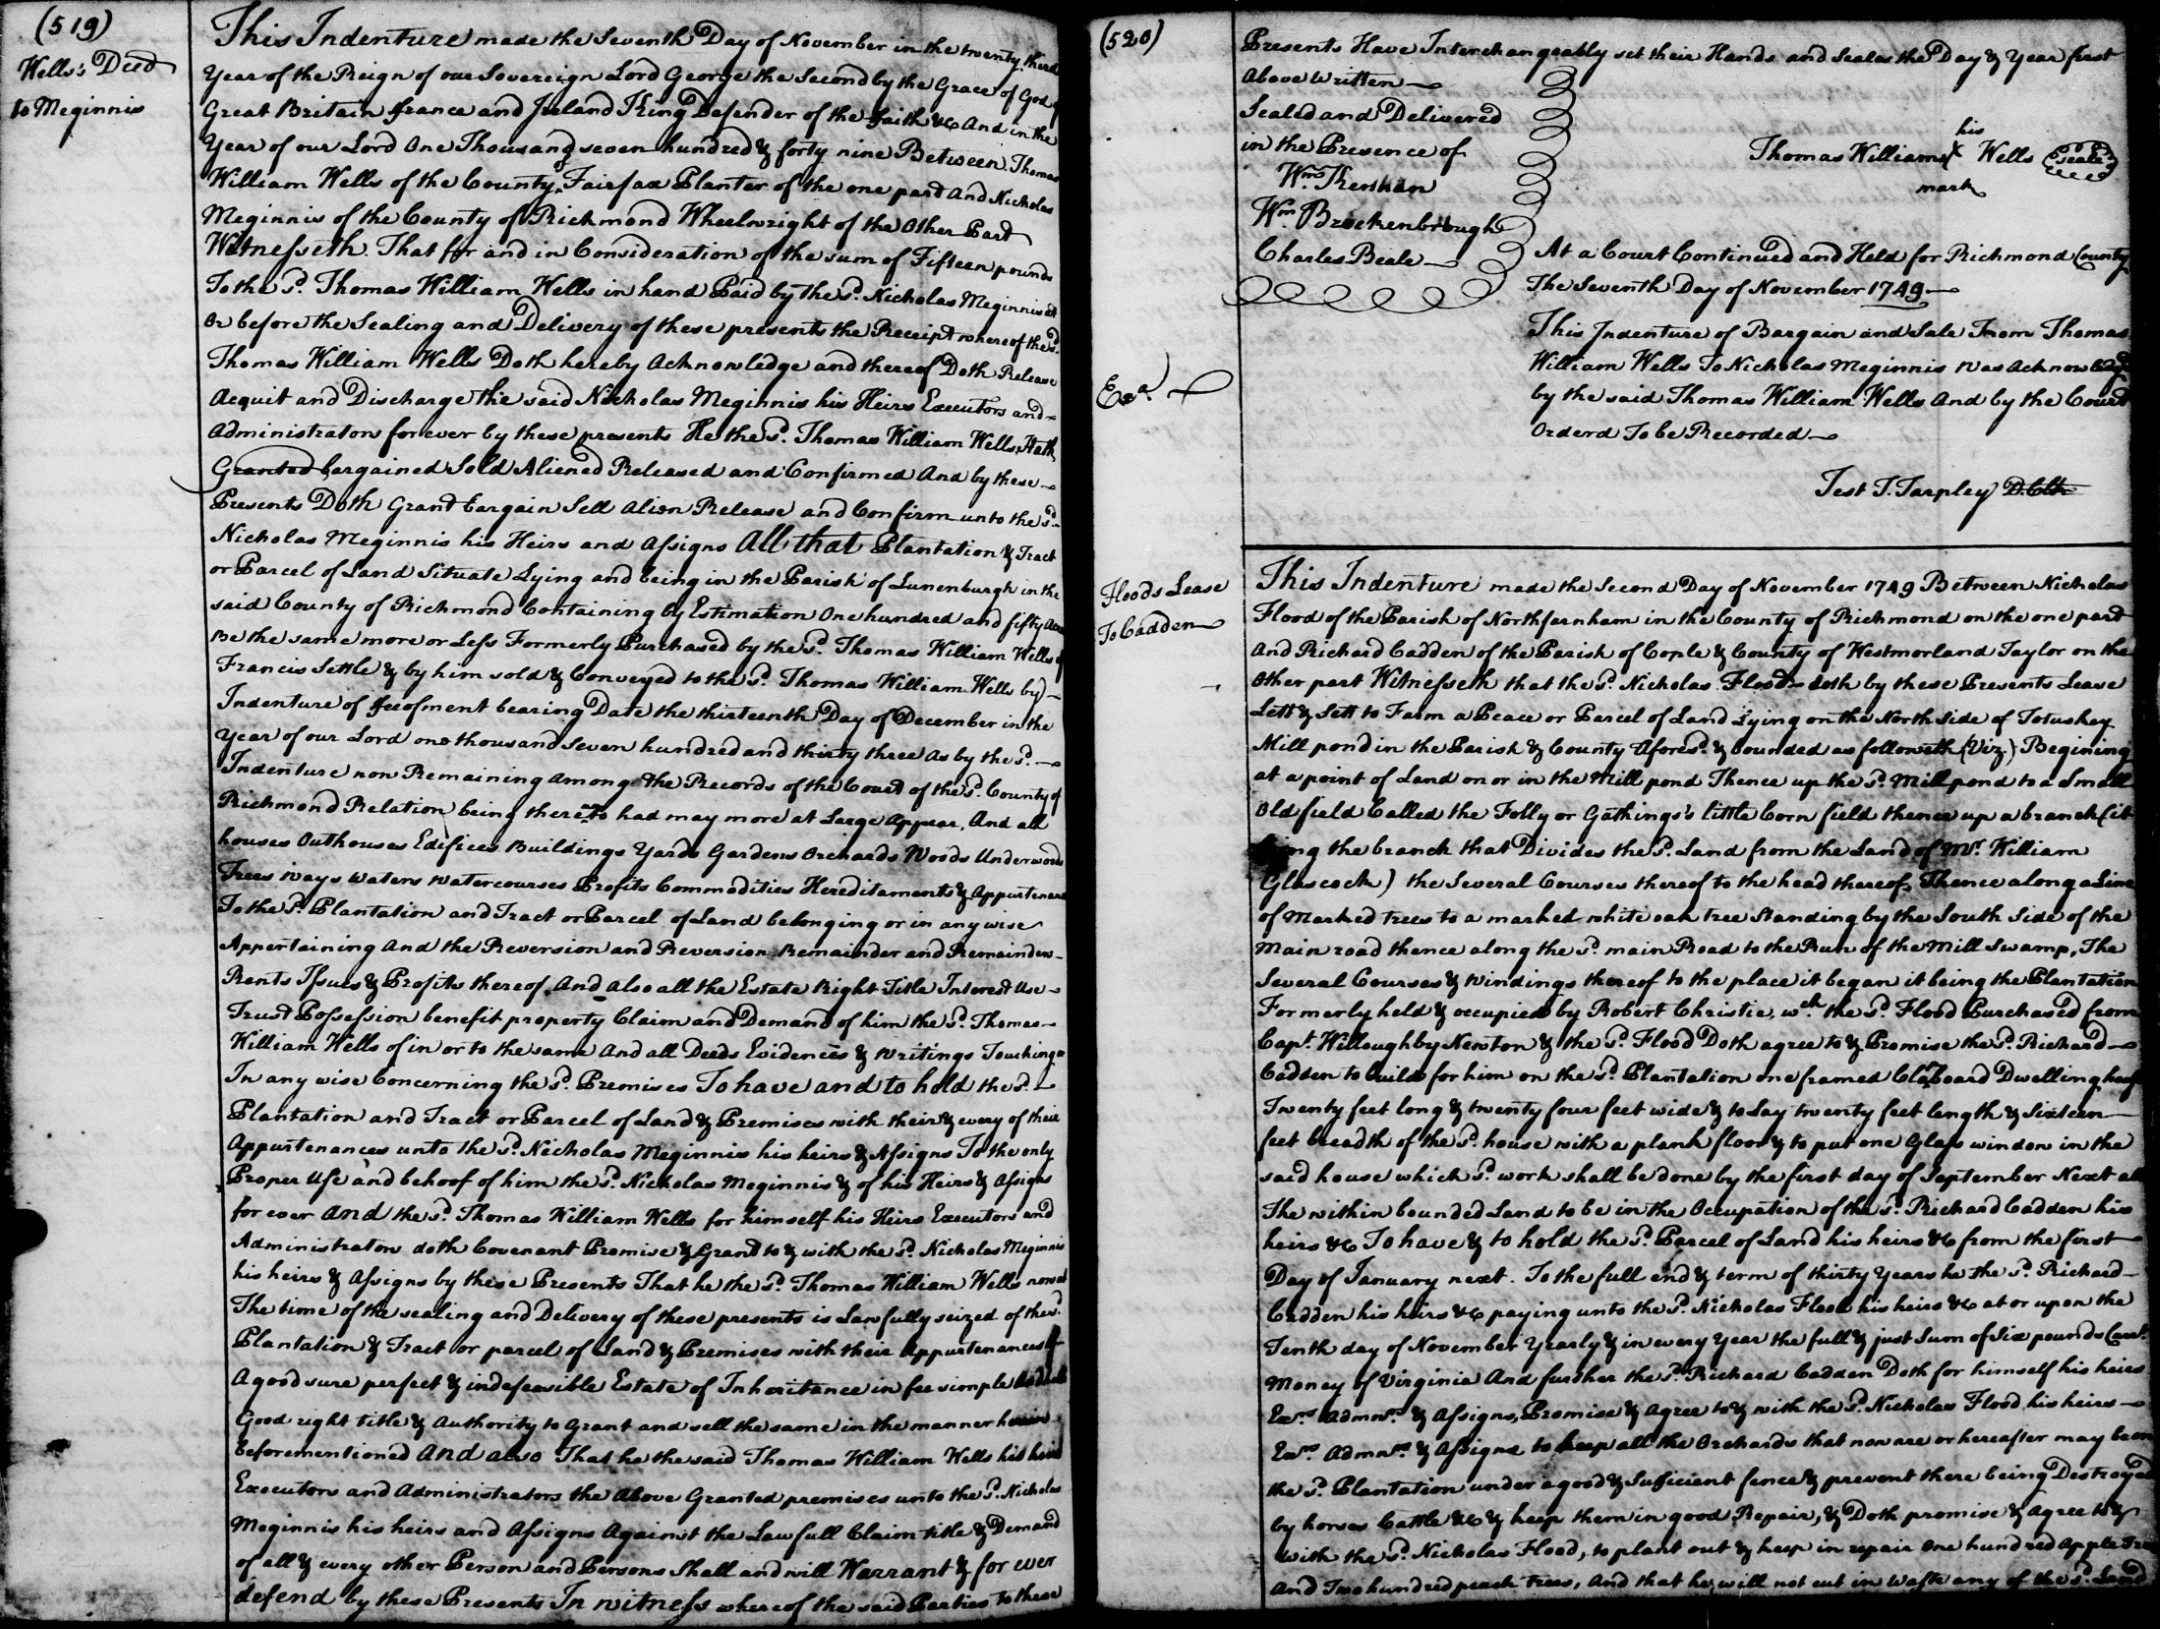 (519)
Wells's Deed
to Meginnis
This Indenture made the Seventh Day of November in the twenty third
Year of the Reign of our Sovereign Lord George the Second by the Grace of God of
Great Britain france and Ireland King Defender of the faith &c And in the
Year of our Lord One Thousand seven hundred & forty nine Between Thomas
William Wells of the County of Fairfax Planter of the one part And Nicholas
Meginnis of the County of Richmond Wheelwright of the Other Part
Witnesseth That for and in Consideration of the sum of Fifteen pounds
To the sd. Thomas William Wells in hand Paid by the sd. Nicholas Meginnis at
Or before the Sealing and Delivery of these presents the Receipt whereof the sd.
Thomas William Wells Doth hereby Acknowledge and thereof Doth Release
Acquit and Discharge the said Nicholas Meginnis his Heirs Executors and
Administrators for ever by these presents He the sd. Thomas William Wells, Hath
Granted bargained Sold Aliened Released and Confirmed And by these
Presents Doth Grant bargain Sell Alien Release and Confirm unto the sd.
Nicholas Meginnis his Heirs and Assigns All that Plantation & Tract
or Parcel of Land Situate Lying and being in the Parish of Lunenburgh in the
said County of Richmond Containing by Estimation One hundred and fifty Acres
Be the same more or Less Formerly Purchased by the sd. Thomas William Wells of
Francis Settle & by him sold & Conveyed to the sd. Thomas William Wells by
Indenture of feeofment bearing Date the thirteenth Day of December in the
Year of our Lord one thousand Seven hundred and thirty three As by the sd.
Indenture now Remaining Among the Records of the Court of the sd. County of
Richmond Relation being thereto had may more at Large Appear, And all
houses Outhouses Edifices Buildings Yards Gardens Orchards Woods Underwoods
Trees Ways Waters Watercourses Profits Commodities Hereditaments & Appurtenances
To the sd. Plantation and Tract or Parcel of Land belonging or in any wise
Appertaining And the Reversion and Reversion Remainder and Remainders
Rents Issues & Profits thereof And also all the Estate Right Title Interest Use
Trust Possession benefit property Claim and Demand of him the sd. Thomas
William Wells of in or to the same And all Deeds Evidences & writings Touching or
In any wise Concerning the sd. Premises To have and to hold the sd.
Plantation and Tract or Parcel of Land & Premises with their & every of their
Appurtenances unto the sd. Nicholas Meginnis his heirs & Assigns To the only
Proper Use and behoof of him the sd. Nicholas Meginnis & of his Heirs & Assigns
for ever And the sd. Thomas William Wells for himself his Heirs Executors and
Administrators doth Covenant Promise & Grant to & with the sd. Nicholas Meginnis
his heirs & Assigns by these Presents That he the sd. Thomas William Wells now at
The time of the sealing and Delivery of these presents is Lawfully seized of the sd.
Plantation & Tract or parcel of Land & Premises with their Appurtenances of
A good sure perfect & indefeasible Estate of Inheritance in fee simple
Good right title & Authority to Grant and sell the same in the manner herein
beforementioned And also That he the said Thomas William Wells his heirs
Executors and Administrators the Above Granted premises unto the sd. Nicholas
Meginnis his heirs and Assigns Against the Lawfull Claim title & Demand
of all & every other Person and Persons Shall and will Warrant & for ever
defend by these Presents In witness whereof the said Parties to these
(520)
Presents Have Interchangeably set their Hands and Seales the Day & Year first
Above Written
Sealed and Delivered
in the Presence of
Wm. Brockenbrough
Charles Beale
his
Thomas William X Wells (Seale)
mark
At a Court Continued and Held for Richmond County
The Seventh Day of November 1749
This Indenture of Bargain and Sale From Thomas
William Wells To Nicholas Meginnis was Acknowledgd
by the said Thomas William Wells And by the Court
Orderd To be Recorded
Exa.
Test T. Tarpley D.Clk
Floods Lease
To Cadden
This Indenture made the Second Day of November 1749 Between Nicholas
Flood of the Parish of Northfarnham in the County of Richmond on the one part
And Richard Cadden of the Parish of Cople & County of Westmorland Taylor on the
Other part Witnesseth that the sd. Nicholas Flood doth by these Presents Lease
Lett & Sett to Farm a Peace or Parcel of Land Lying on the North Side of Totuskey
Mill pond in the Parish & County Aforesd. & bounded as followeth (Viz) Begining
at a point of Land on or in the Mill pond Thence up the sd. Mill pond to a Small
Old field Called the Folly or Gathings's little Corn field thence up a branch (it
being the branch that Divides the sd. Land from the Land of Mr. William
Glascock) the Several Courses thereof to the head thereof, Thence along a Line
of Marked trees to a marked white oak tree Standing by the South Side of the
Main road thence along the sd. main Road to the Run of the Mill Swamp, The
Several Courses & windings thereof to the place it began it being the Plantation
Formerly held & occupied by Robert Christie, wch. the sd. Flood Purchased from
Capt. Willoughby Newton & the sd. Flood Doth agree to & Promise the sd. Richard
Cadden to build for him on the sd. Plantation one framed Claboard Dwelling house
Twenty feet long & twenty four feet wide & to Lay twenty feet length & Sixteen
feet breadth of the sd. house with a plank floor & to put one Glass window in the
said house which sd. work shall be done by the first day of September Next all
The within bounded Land to be in the Occupation of the sd. Richard Cadden his
heirs &c To have & to hold the sd. Parcel of Land his heirs &c from the first
Day of January next. To the full end & term of thirty Years he the sd. Richard
Cadden his heirs &c paying unto the sd. Nicholas Flood his heirs &c at or upon the
Tenth day of November Yearly & in every Year the full & just Sum of Six pounds Curt.
Money of Virginia And further the sd. Richard Cadden Doth for himself his heirs
Exrs. Admrs. & Assigns, Promise & Agree to & with the sd. Nicholas Flood his heirs
Exrs. Admrs. & Assigns to keep all the Orchards that now are or hereafter may be on
the sd. Plantation under a good & Sufficient fence & prevent there being Destroyed
by horses Cattle &c & keep them in good Repair, & Doth promise & Agree to &
with the sd. Nicholas Flood, to plant out & keep in repair One hundred Apple Trees
And Two hundred peach Trees, And that he will not cut in Waste any of the sd. Land